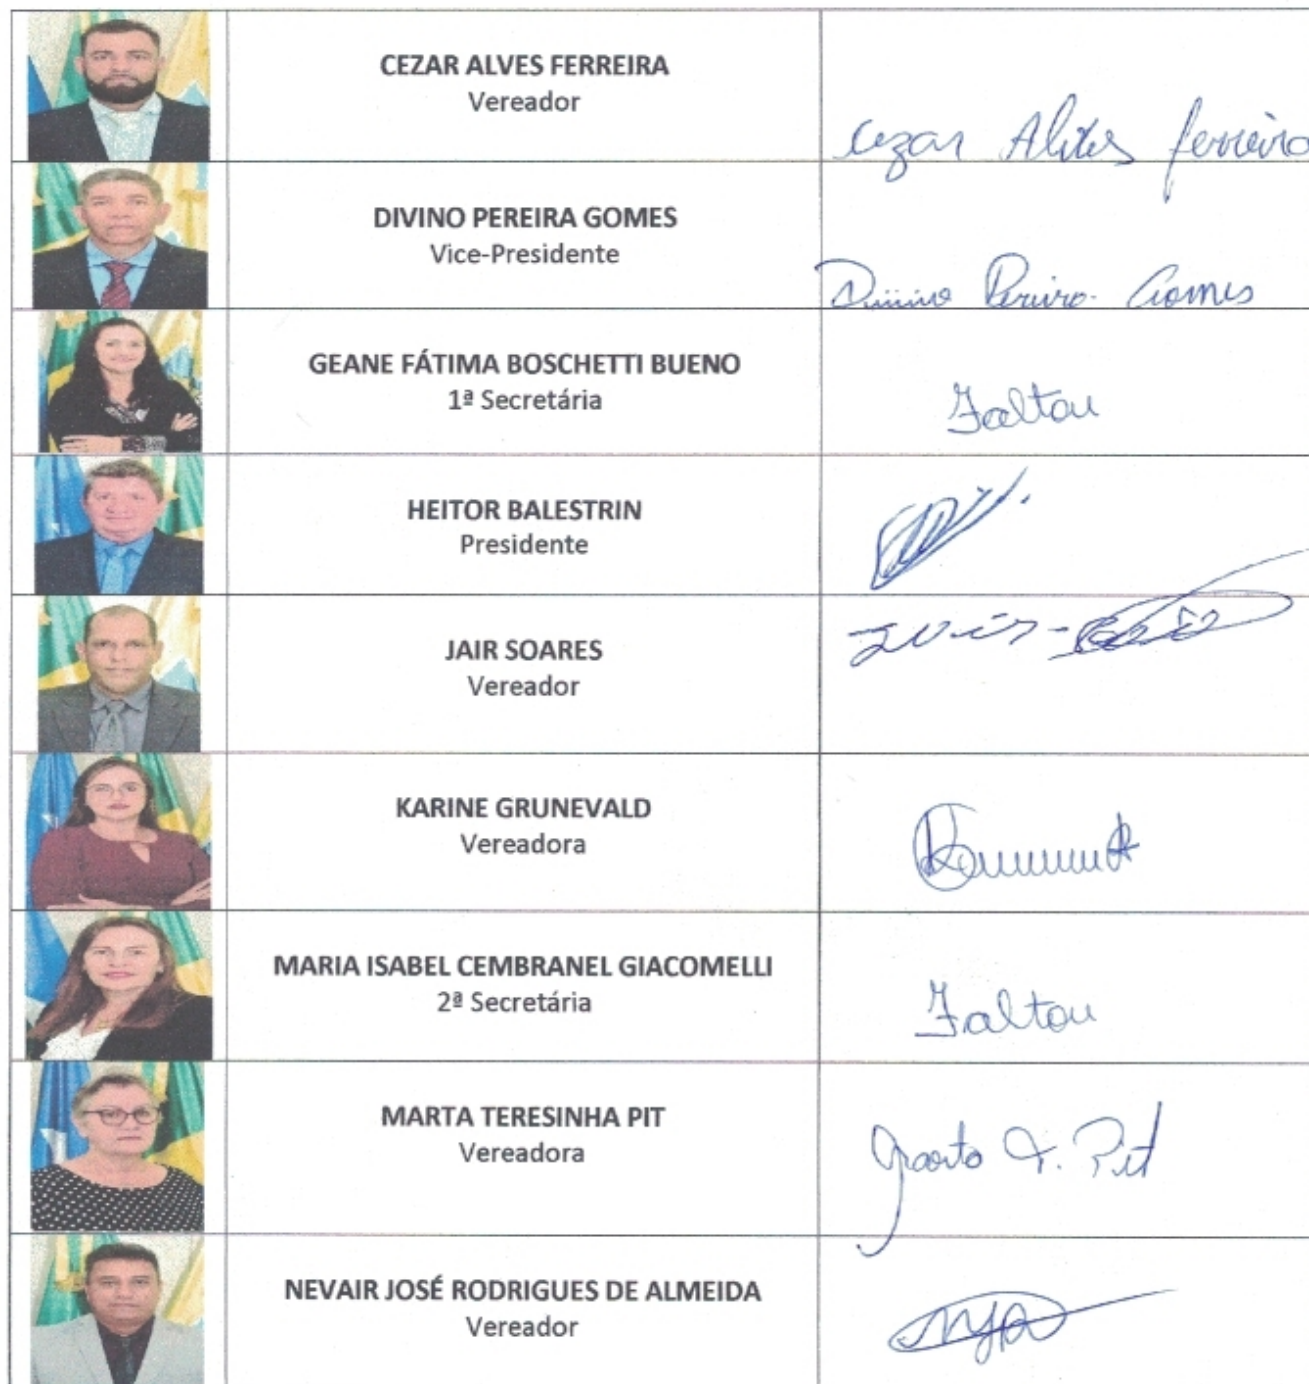 CEZAR ALVES FERREIRA
Vereador
Cezar Alves Ferreira
DIVINO PEREIRA GOMES
Vice-Presidente
Divino Pereira Gomes
GEANE FÁTIMA BOSCHETTI BUENO
1ª Secretária
Faltou
HEITOR BALESTRIN
Presidente
JAIR SOARES
Vereador
KARINE GRUNEVALD
Vereadora
MARIA ISABEL CEMBRANEL GIACOMELLI
2ª Secretária
Faltou
MARTA TERESINHA PIT
Vereadora
Marta T. Pit
NEVAIR JOSÉ RODRIGUES DE ALMEIDA
Vereador